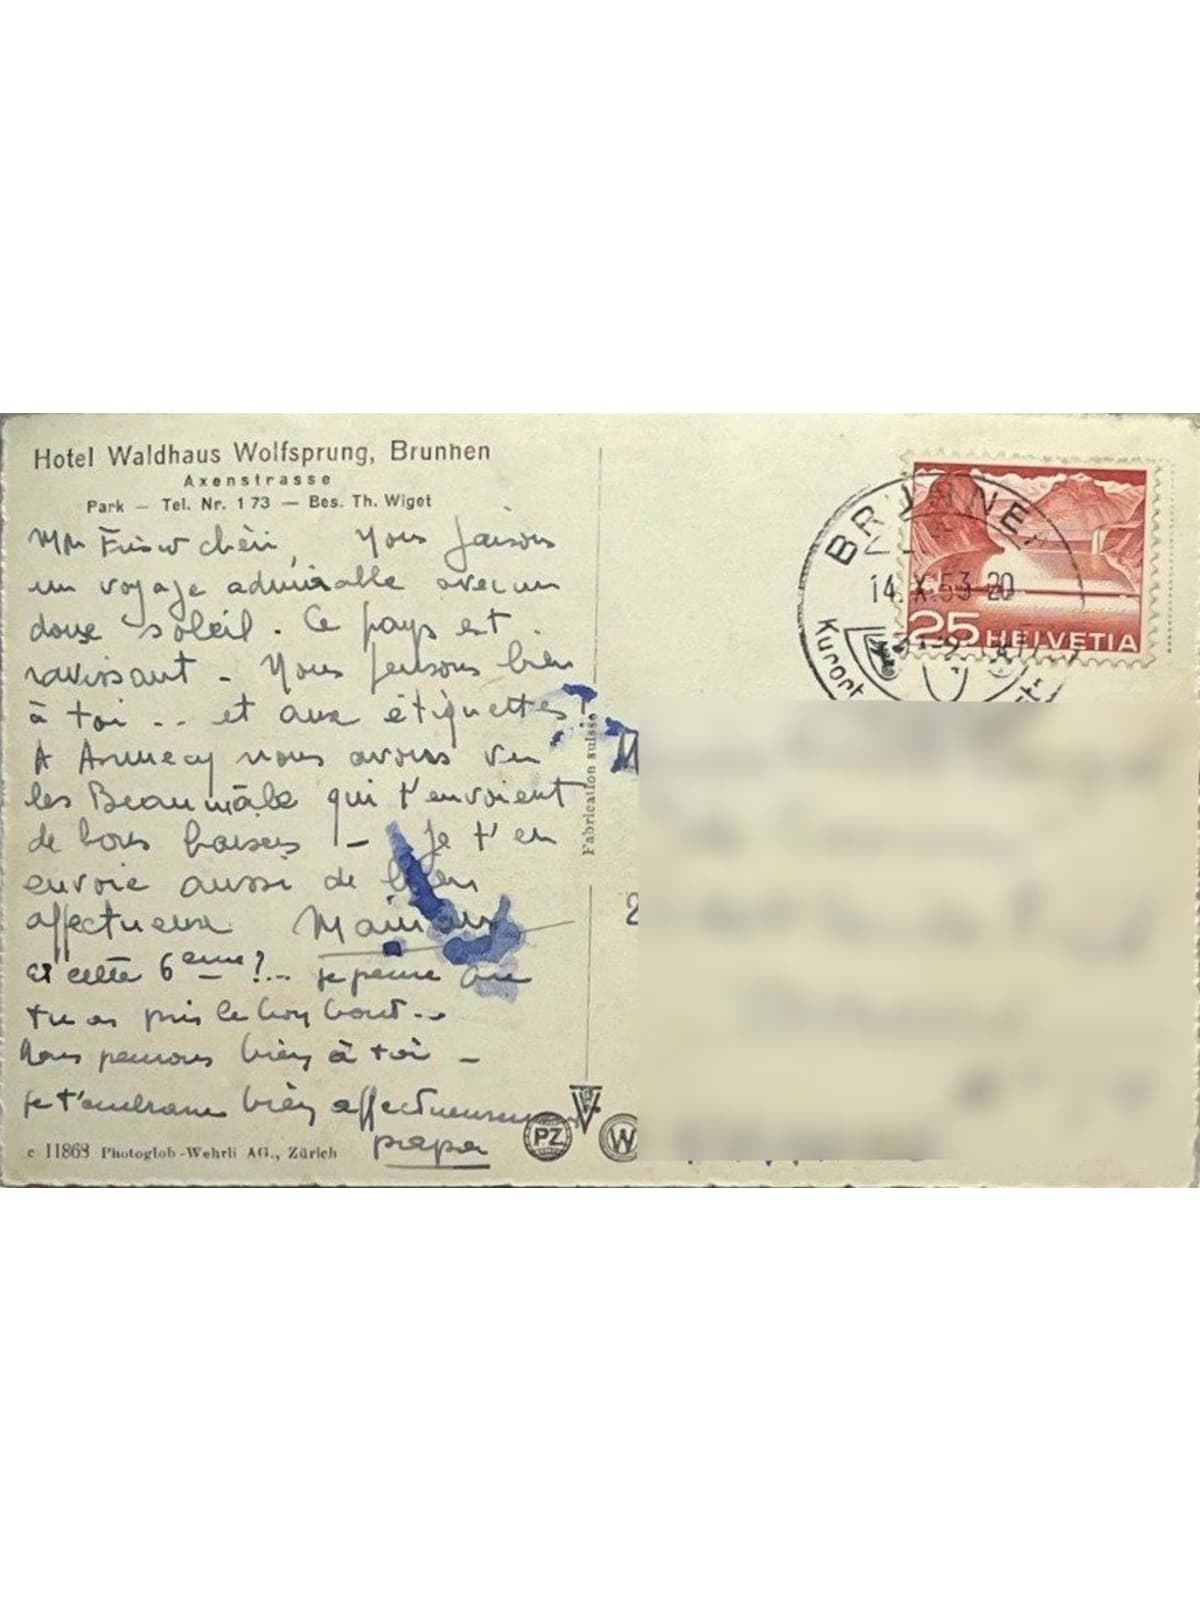 Hotel Waldhaus Wolfsprung, Brunnen
Axenstrasse
Park — Tel. Nr. 173 — Bes. Th. Wiget
Mon chéri, Nous faisons
un voyage admirable avec un
doux soleil. Ce pays est
ravissant - Nous pensons bien
à toi .. et aux étiquettes!
A Annecy nous avons vu
les qui t'envoient
de bons baisers - Je t'en
envoie aussi de bien
affectueux. Maman
et cette 6eme?... je pense que
tu as pris le bon bout..
Nous pensons bien à toi -
je t'embrasse bien affectueusement
papa
c 11868 Photoglob-Wehrli AG., Zürich
Fabrication suisse
PZ
W
BRUNNEN
14.X.53-20
Kurort
25 HELVETIA